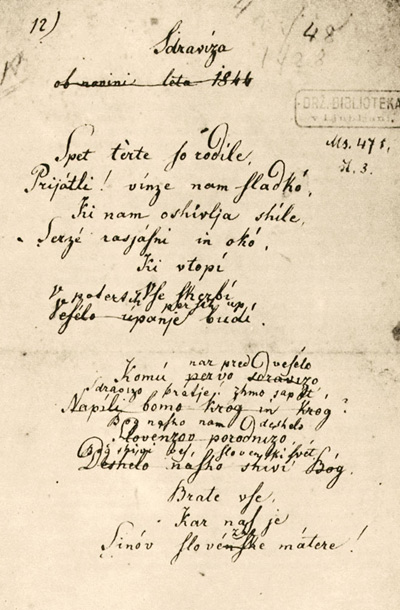 12)
48
Sdravíza
ob novini léta 1844
DRŽ. BIBLIOTEKA
v Ljubljani
Ms. 471,
H. 3.
Spet tèrte so rodile,
Prijátli! vínze nam sladkó,
Ki nam oshívlja shíle,
Serzé rasjásni in okó,
Ki vtopí
Vse skerbí
V potertih persih up
Vesélo úpanje budí.
nar pred veselo
Komú pervo sdravízo
Sdravizo bratje! zhmo sapét'
Napíli bomo krog in krog?
Bog nasho nam deshelo
Slovenzov porodnizo
Bog shivi ves slovenski svét,
Deshelo nasho shiví Bóg.
Brate vse,
Kar nas je
Sinóv slovénske mátere!